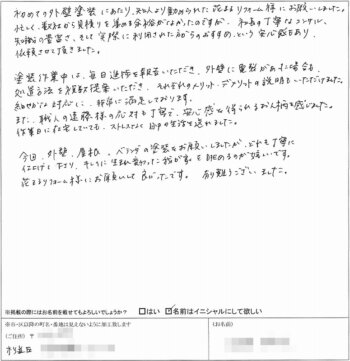 初めての外壁塗装にあたり、知人より勧められた花まるリフォーム様にお願いしました。
忙しく、数社から見積りを集める余裕がなかったのですが、初台の丁寧なコンサル、
知識の豊富さ、そして実際に利用された方からのおすすめ、という安心感もあり、
依頼させて頂きました。
塗装作業中は、毎日進捗を報告いただき、外壁に重なった場合も
処置方法を複数提案いただき、それぞれのメリット・デメリットの説明もいただけました。
きめ細かな対応に、非常に満足しております。
また、職人の遠藤様の応対も丁寧で、安心感を得られるお人柄を感じました。
作業日に在宅していても、ストレスなく日中の生活を送れました。
今回、外壁、屋根、ベランダの塗装をお願いしましたが、どれも丁寧に
仕上げて下さり、キレイに生まれ変わった我が家を眺めるのが嬉しいです。
花まるリフォーム様にお願いして良かったです。有り難うございました。
※掲載の際にはお名前を載せてもよろしいでしょうか?
□はい
☑名前はイニシャルにして欲しい
※市・区以降の町名・番地は見えないように加工致します
(ご住所) 〒
(お名前)